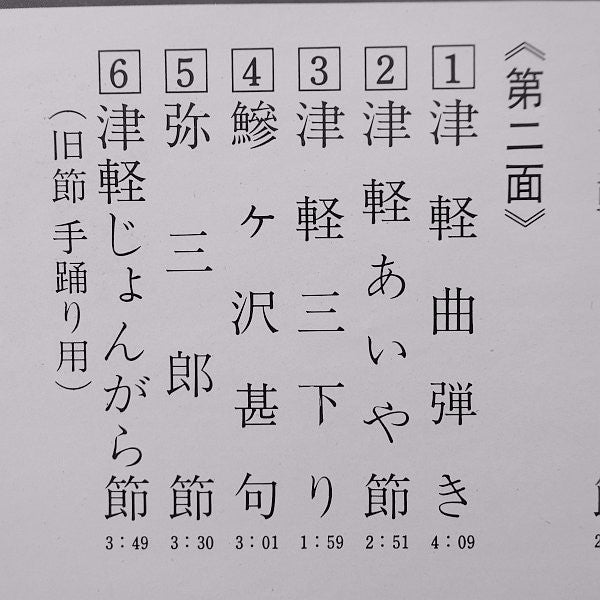 《第二面》
1 津軽曲弾き 4:09
2 津軽あいや節 2:51
3 津軽三下り 1:59
4 鰺ヶ沢甚句 3:01
5 弥三郎節 3:30
6 津軽じょんがら節 3:49
(旧節 手踊り用)